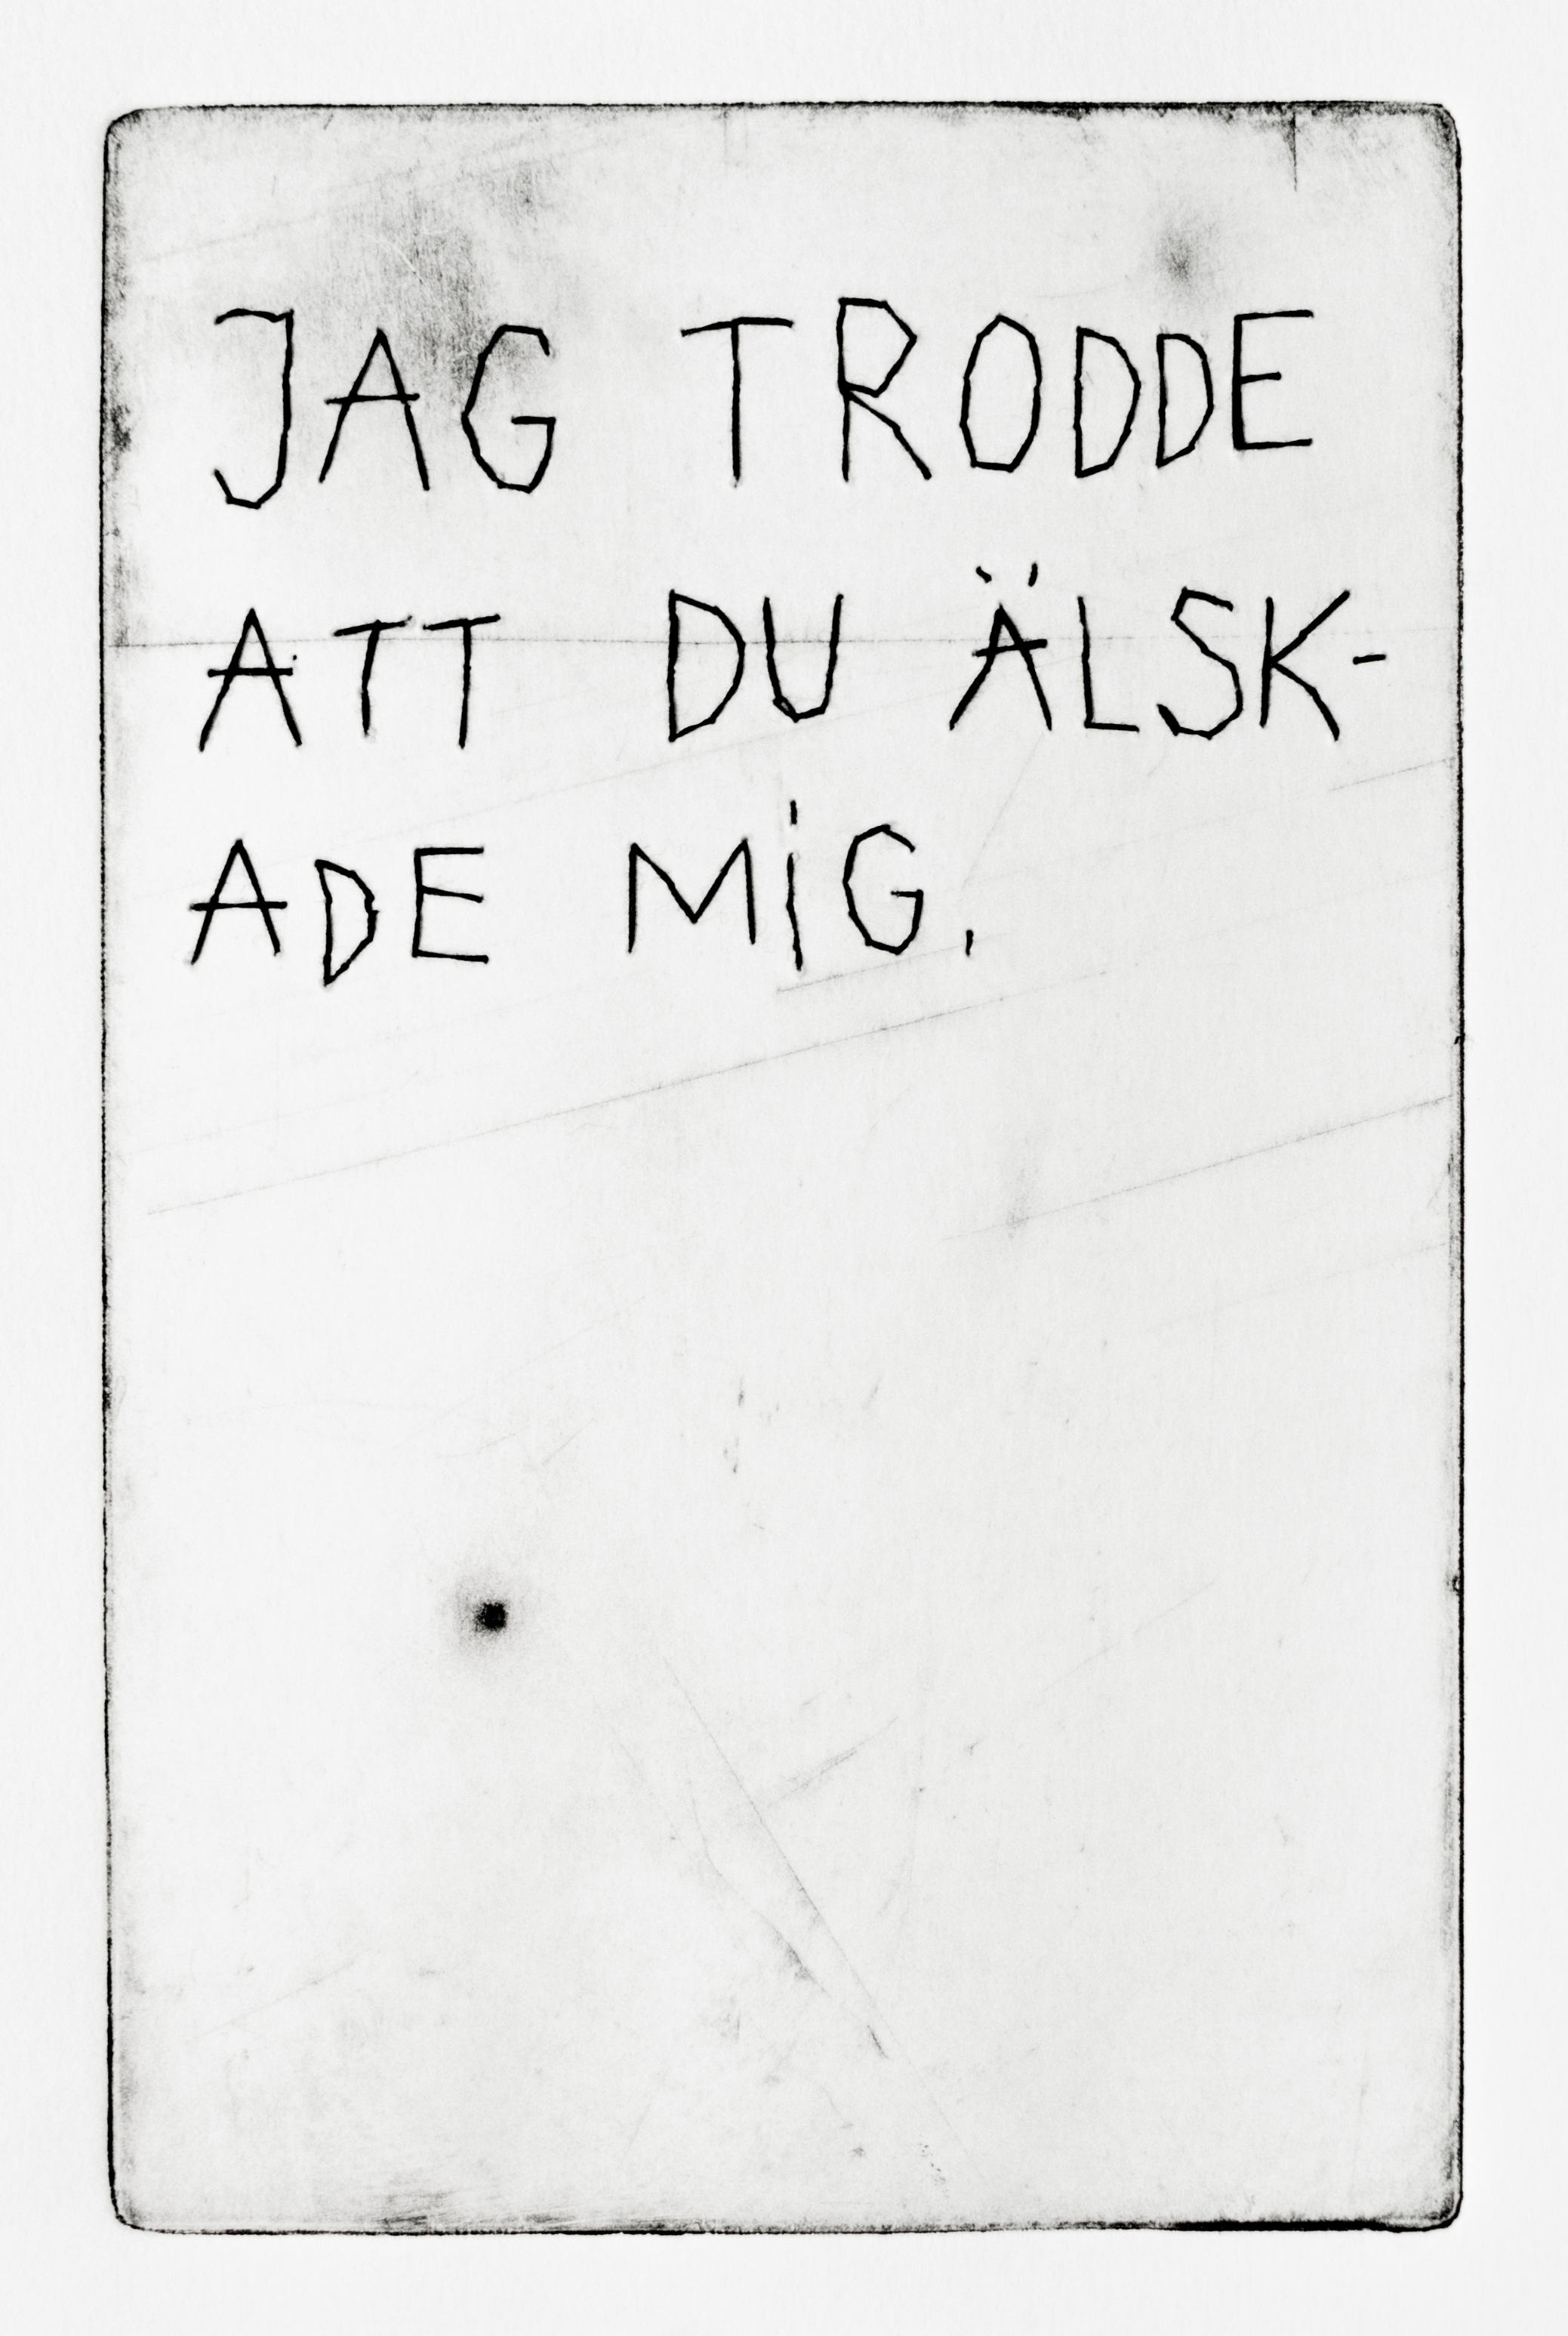 JAG TRODDE
ATT DU ÄLSK-
ADE MiG.